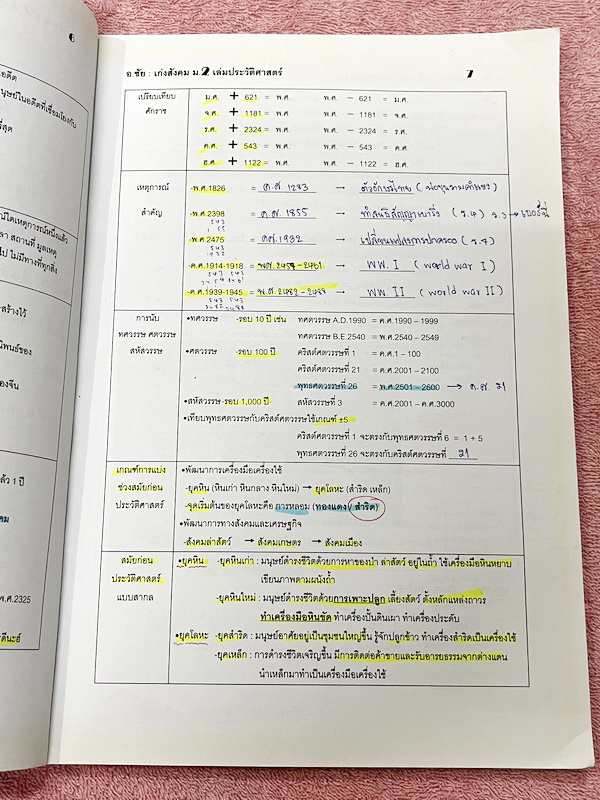 6
อดีต
นุษย์ในอดีตที่เชื่อมโยงกับ
ที่สุด
ณ์ใดเหตุการณ์หนึ่งแล้ว
ลา สถานที่ มูลเหตุ
ไป ไม่มีทางที่ทุกสิ่ง
สร้างไว้
นิพนธ์ของ
องจีน
ล้ว 1 ปี
พ.ศ.2325
อ.ชัย : เก่งสังคม ม.2 เล่มประวัติศาสตร์ 7
เปรียบเทียบ ม.ศ. + 621 = พ.ศ. พ.ศ. − 621 = ม.ศ.
ศักราช จ.ศ. + 1181 = พ.ศ. พ.ศ. − 1181 = จ.ศ.
ร.ศ. + 2324 = พ.ศ. พ.ศ. − 2324 = ร.ศ.
ค.ศ. + 543 = พ.ศ. พ.ศ. − 543 = ค.ศ.
ฮ.ศ. + 1122 = พ.ศ. พ.ศ. − 1122 = ฮ.ศ.
เหตุการณ์ -พ.ศ.1826 = ค.ศ. 1283 → ตัวอักษรไทย (พ่อขุนรามคำแหง)
สำคัญ -พ.ศ.2398 = ค.ศ. 1855 → ทำสนธิสัญญาเบาริ่ง (ร.4)
-พ.ศ.2475 = ค.ศ. 1932 → เปลี่ยนแปลงการปกครอง (ร.7)
-ค.ศ.1914-1918 = พ.ศ. 2457-2461 → WW. I (world war I)
-ค.ศ.1939-1945 = พ.ศ. 2482-2488 → WW. II (world war II)
การนับ •ทศวรรษ -รอบ 10 ปี เช่น ทศวรรษ A.D.1990 = ค.ศ.1990 – 1999
ทศวรรษ ศตวรรษ ทศวรรษ B.E.2540 = พ.ศ.2540 – 2549
สหัสวรรษ •ศตวรรษ -รอบ 100 ปี คริสต์ศตวรรษที่ 1 = ค.ศ.1 – 100
คริสต์ศตวรรษที่ 21 = ค.ศ.2001 - 2100
พุทธศตวรรษที่ 26 = พ.ศ.2501 – 2600 → ค.ศ. 21
•สหัสวรรษ-รอบ 1,000 ปี สหัสวรรษที่ 3 = ค.ศ.2001 – ค.ศ.3000
•เทียบพุทธศตวรรษกับคริสต์ศตวรรษใช้เกณฑ์ ±5
คริสต์ศตวรรษที่ 1 จะตรงกับพุทธศตวรรษที่ 6 = 1 + 5
พุทธศตวรรษที่ 26 จะตรงกับคริสต์ศตวรรษที่ 21
เกณฑ์การแบ่ง •พัฒนาการเครื่องมือเครื่องใช้
ช่วงสมัยก่อน -ยุคหิน (หินเก่า หินกลาง หินใหม่) → ยุคโลหะ (สำริด เหล็ก)
ประวัติศาสตร์ -จุดเริ่มต้นของยุคโลหะคือ การหลอม (ทองแดง / สำริด)
•พัฒนาการทางสังคมและเศรษฐกิจ
-สังคมล่าสัตว์ → สังคมเกษตร → สังคมเมือง
สมัยก่อน •ยุคหิน -ยุคหินเก่า : มนุษย์ดำรงชีวิตด้วยการหาของป่า ล่าสัตว์ อยู่ในถ้ำ ใช้เครื่องมือหินหยาบ
ประวัติศาสตร์ เขียนภาพตามผนังถ้ำ
แบบสากล -ยุคหินใหม่ : มนุษย์ดำรงชีวิตด้วยการเพาะปลูก เลี้ยงสัตว์ ตั้งหลักแหล่งถาวร
ทำเครื่องมือหินขัด ทำเครื่องปั้นดินเผา ทำเครื่องประดับ
•ยุคโลหะ -ยุคสำริด : มนุษย์อาศัยอยู่เป็นชุมชนใหญ่ขึ้น รู้จักปลูกข้าว ทำเครื่องสำริดเป็นเครื่องใช้
-ยุคเหล็ก : การดำรงชีวิตเจริญขึ้น มีการติดต่อค้าขายและรับอารยธรรมจากต่างแดน
นำเหล็กมาทำเป็นเครื่องมือเครื่องใช้